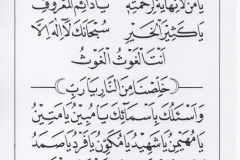 يَا مَنْ لَا نِهَايَةَ لِرَحْمَتِهِ يَا دَائِمَ الْمَعْرُوفِ
يَا كَثِيرَ الْخَيْرِ سُبْحَانَكَ لَا إِلٰهَ إِلَّا
اَنْتَ الْغَوْثُ الْغَوْثُ
خَلِّصْنَا مِنَ النَّارِ يَا رَبِّ
وَاَسْئَلُكَ بِاَسْمَائِكَ يَا مُبِينُ يَا مَتِينُ
يَا مُهَيْمِنُ يَا شَهِيدُ يَا مُكَوِّنُ يَا فَرْدُ يَا صَمَدُ